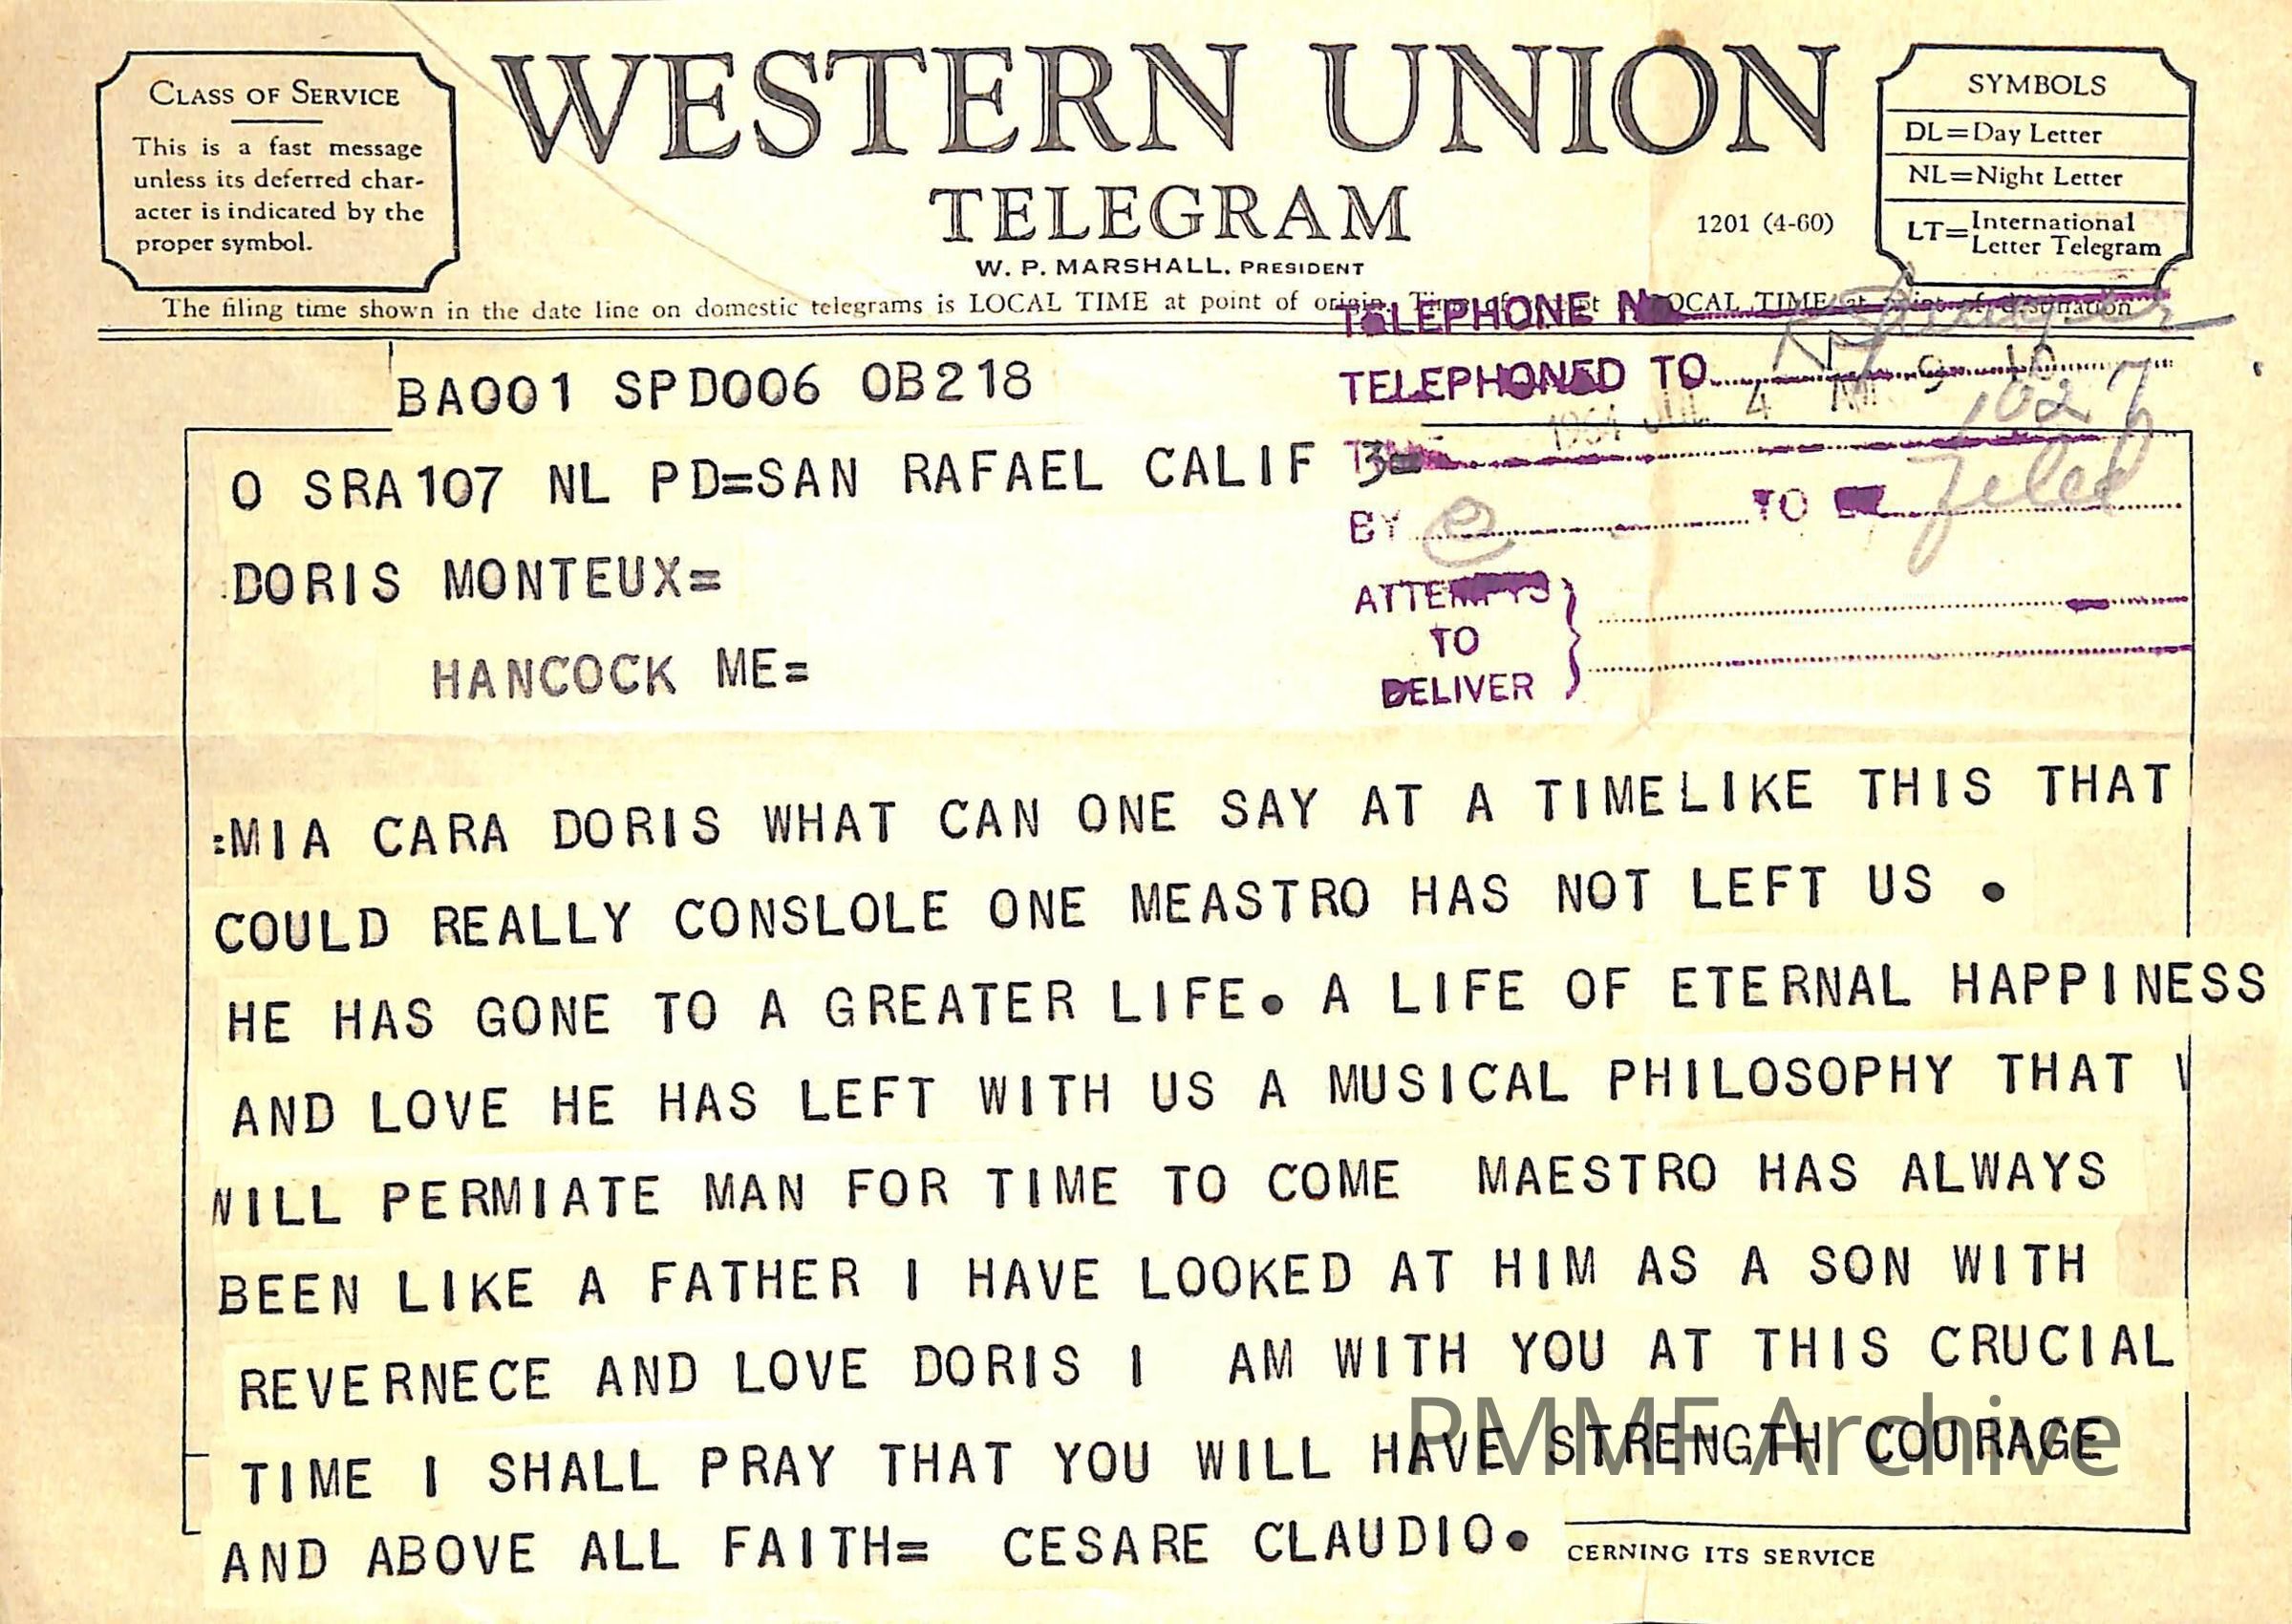 CLASS OF SERVICE
This is a fast message
unless its deferred char-
acter is indicated by the
proper symbol.
WESTERN UNION
TELEGRAM
W. P. MARSHALL, PRESIDENT
1201 (4-60)
SYMBOLS
DL=Day Letter
NL=Night Letter
LT=International
Letter Telegram
The filing time shown in the date line on domestic telegrams is LOCAL TIME at point of origin. Time of receipt LOCAL TIME at point of destination
TELEPHONE
TELEPHONED TO
1964 JUL 4 AM 9 10
1027
BY e TO
teled
ATTEMPTS
TO
DELIVER
BA001 SPD006 OB218
O SRA107 NL PD=SAN RAFAEL CALIF 3=
:DORIS MONTEUX=
HANCOCK ME=
:MIA CARA DORIS WHAT CAN ONE SAY AT A TIMELIKE THIS THAT
COULD REALLY CONSLOLE ONE MEASTRO HAS NOT LEFT US .
HE HAS GONE TO A GREATER LIFE. A LIFE OF ETERNAL HAPPINESS
AND LOVE HE HAS LEFT WITH US A MUSICAL PHILOSOPHY THAT W
WILL PERMIATE MAN FOR TIME TO COME MAESTRO HAS ALWAYS
BEEN LIKE A FATHER I HAVE LOOKED AT HIM AS A SON WITH
REVERNECE AND LOVE DORIS I AM WITH YOU AT THIS CRUCIAL
TIME I SHALL PRAY THAT YOU WILL HAVE STRENGTH COURAGE
AND ABOVE ALL FAITH= CESARE CLAUDIO.
CERNING ITS SERVICE
PMMF Archive